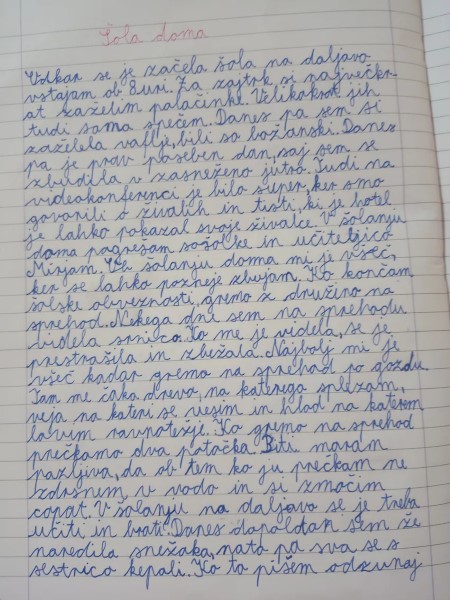 Šola doma
Odkar se je začela šola na daljavo
vstajam ob 8 uri. Za zajtrk si največkr-
at zaželim palačinke. Velikokrat jih
tudi sama spečem. Danes pa sem si
zaželela vaflje, bili so božanski. Danes
pa je prav poseben dan, saj sem se
zbudila v zasneženo jutro. Tudi na
videokonferenci je bilo super, ker smo
govorili o živalih in tisti, ki je hotel
je lahko pokazal svoje živalce. V šolanju
doma pogrešam sošolke in učiteljico
Mirjam. Ob šolanju doma mi je všeč,
ker se lahko pozneje zbujam. Ko končam
šolske obveznosti, gremo z družino na
sprehod. Nekega dne sem na sprehodu
videla srnico. Ko me je videla, se je
prestrašila in zbežala. Najbolj mi je
všeč kadar gremo na sprehod po gozdu.
Tam me čaka drevo, na katerega splezam,
veja na kateri se vesim in hlod na katerem
lovim ravnotežje. Ko gremo na sprehod
prečkamo dva potočka. Biti moram
pazljiva, da ob tem ko ju prečkam ne
zdrsnem v vodo in si zmočim
copat. V šolanju na daljavo se je treba
učiti in brati. Danes dopoldan sem že
naredila snežaka, nato pa sva se s
sestrico kepali. Ko to pišem odzunaj